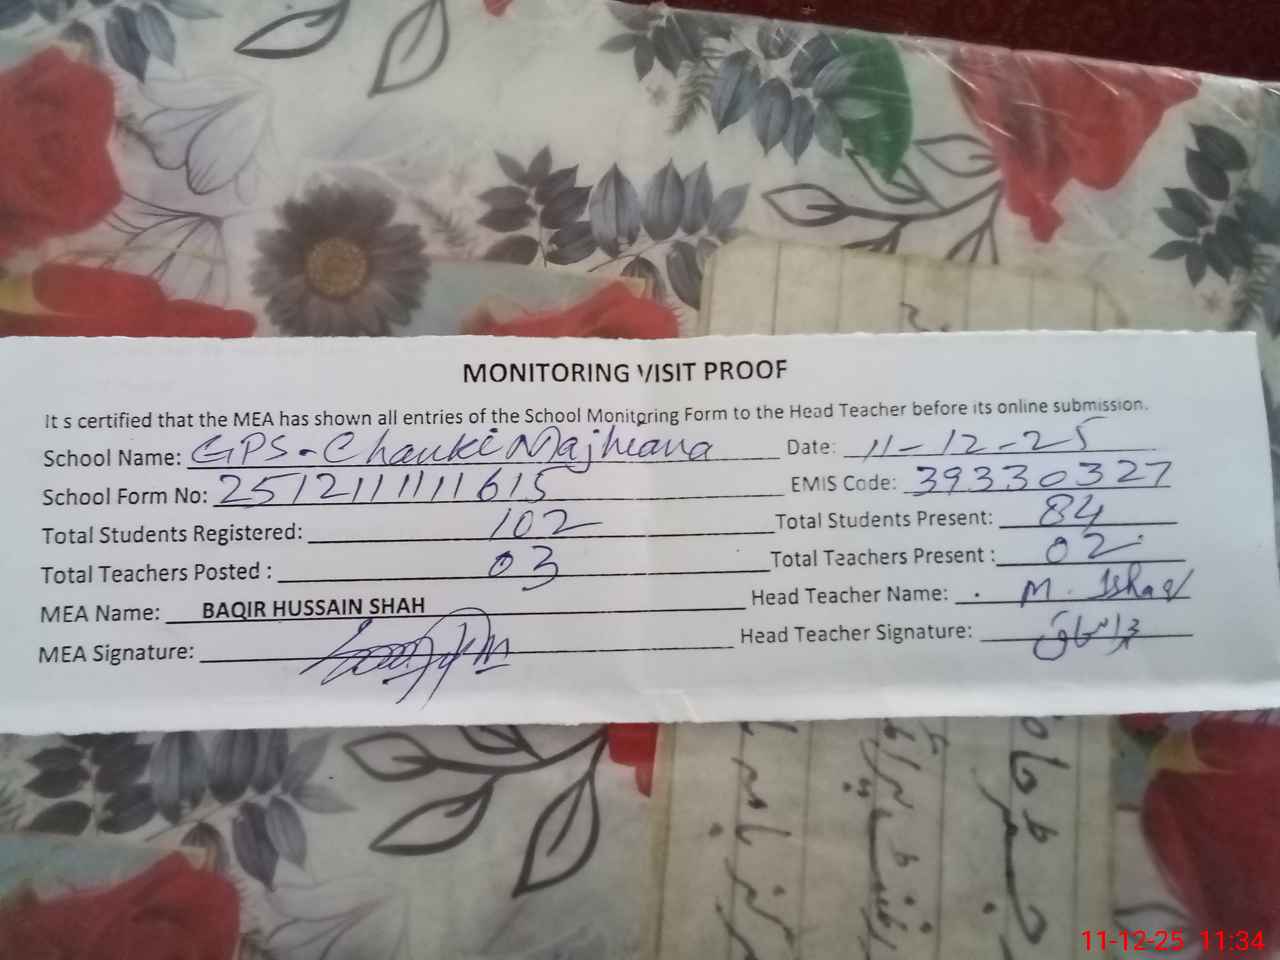 MONITORING VISIT PROOF
It s certified that the MEA has shown all entries of the School Monitoring Form to the Head Teacher before its online submission.
School Name: GPS. Chauki Majheana Date: 11-12-25
School Form No: 251211111615 EMIS Code: 39330327
Total Students Registered: 102 Total Students Present: 84
Total Teachers Posted : 03 Total Teachers Present : 02
MEA Name: BAQIR HUSSAIN SHAH Head Teacher Name: M. Ishaq
MEA Signature: Head Teacher Signature:
11-12-25 11:34